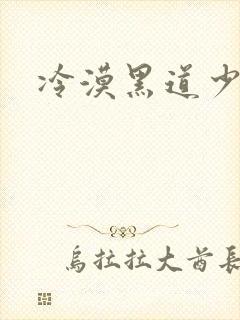 冷漠黑道少
烏拉拉大酋長